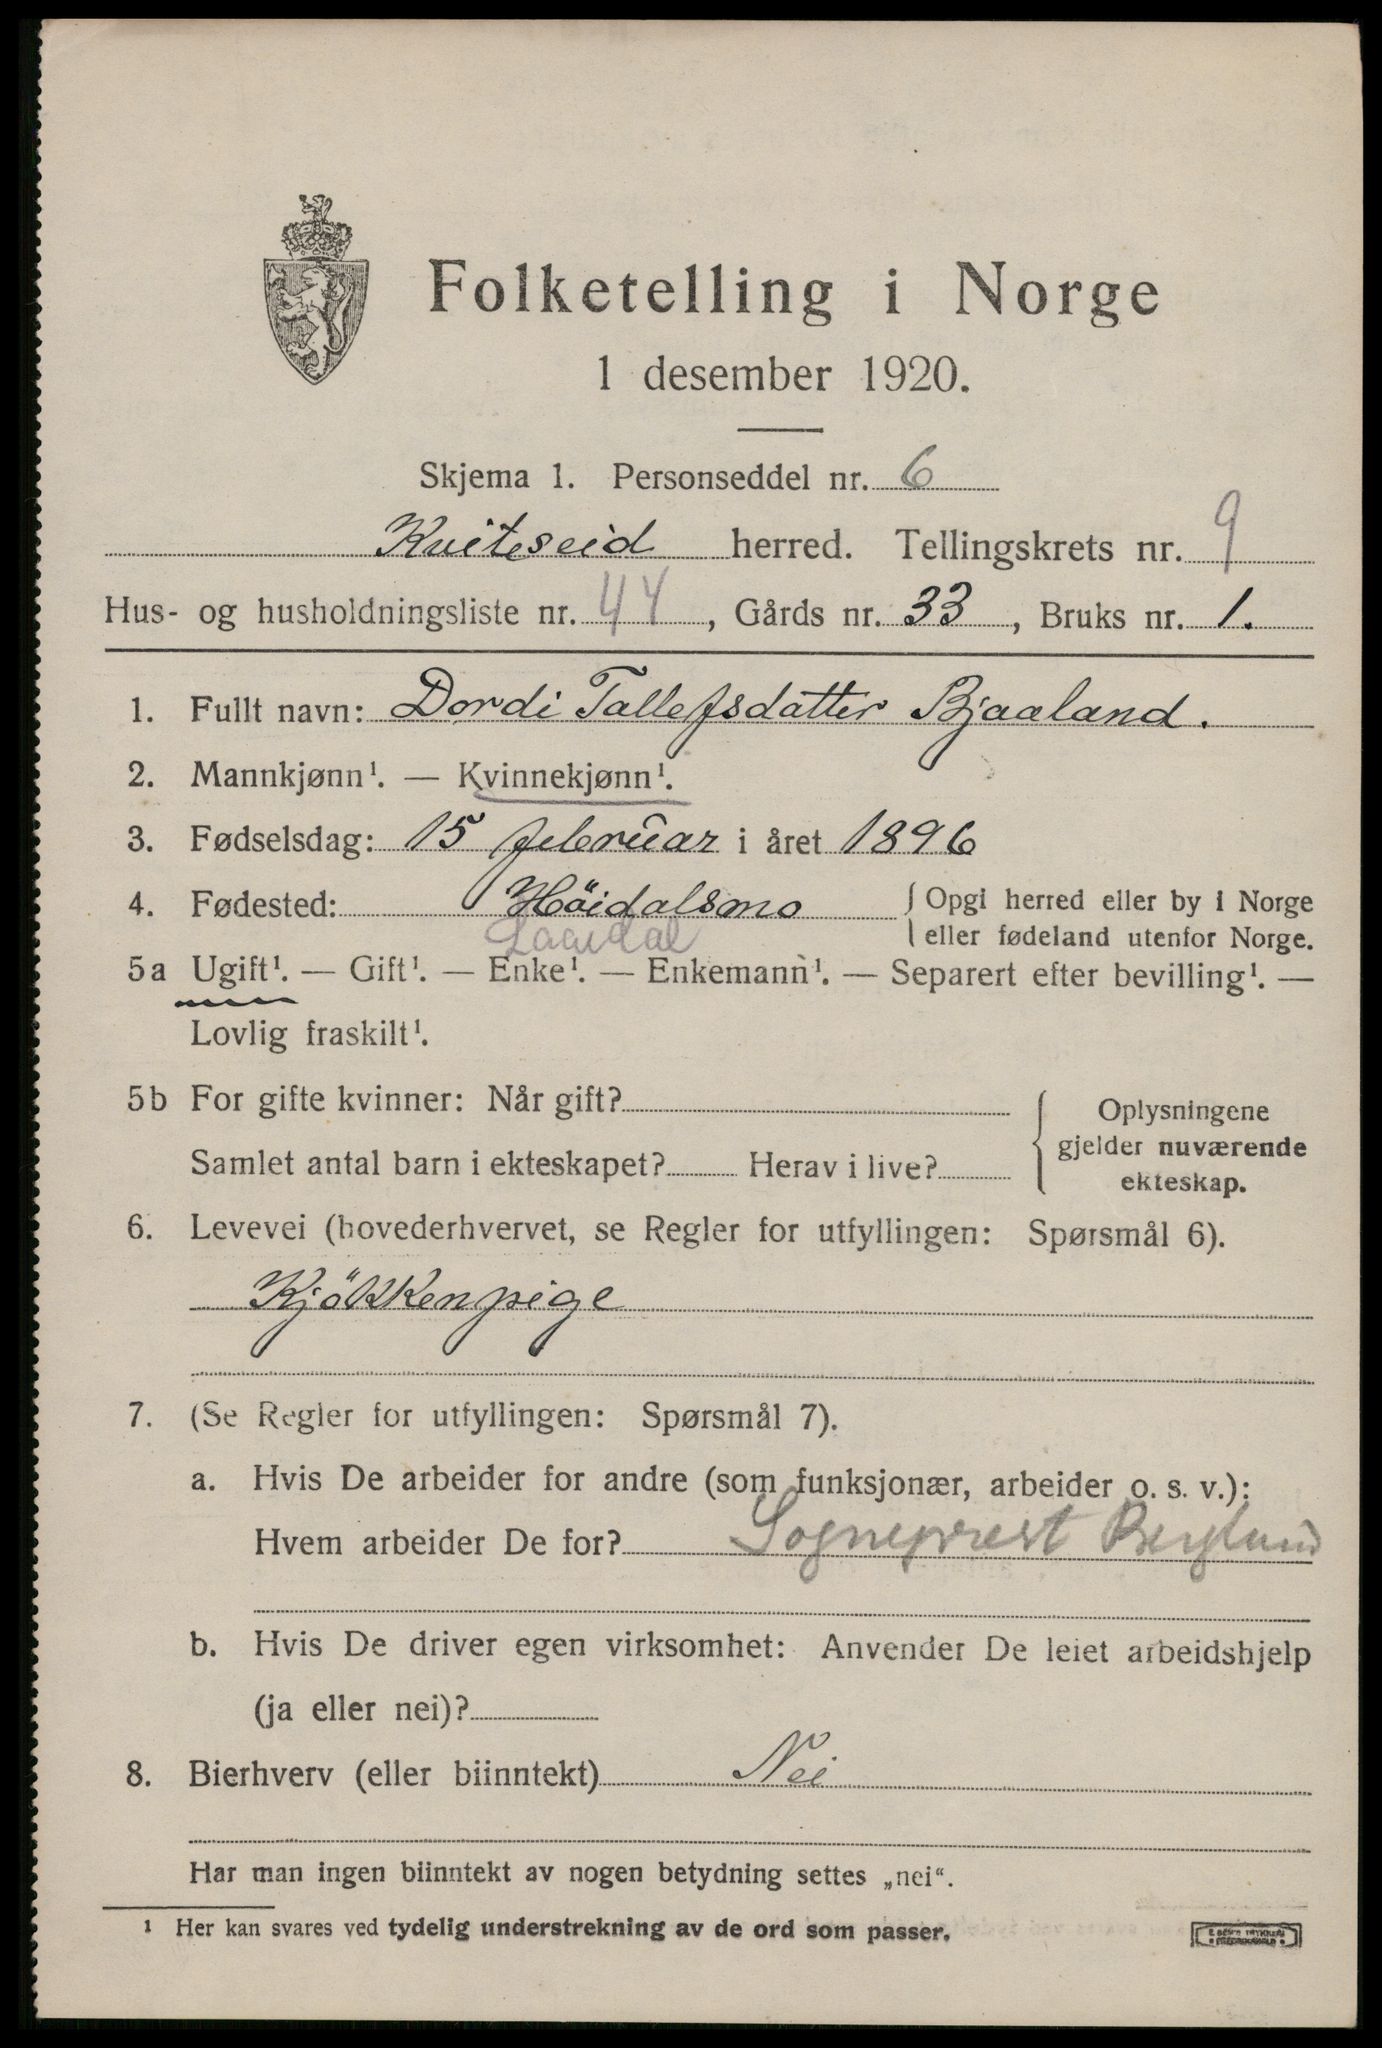 Folketelling i Norge
1 desember 1920.
Skjema 1. Personseddel nr. 6
Kviteseid herred. Tellingskrets nr. 9
Hus- og husholdningsliste nr. 44, Gårds nr. 33, Bruks nr. 1.
1. Fullt navn: Dordi Tallefsdatter Bjaaland.
2. Mannkjønn¹. — Kvinnekjønn¹.
3. Fødselsdag: 15 februar i året 1896
4. Fødested: Höidalsmo { Opgi herred eller by i Norge
eller fødeland utenfor Norge.
Laardal
5a Ugift¹. — Gift¹. — Enke¹. — Enkemann¹. — Separert efter bevilling¹. —
Lovlig fraskilt¹.
5b For gifte kvinner: Når gift? { Oplysningene
gjelder nuværende
Samlet antal barn i ekteskapet? Herav i live?
ekteskap.
6. Levevei (hovederhvervet, se Regler for utfyllingen: Spørsmål 6).
Kjökkenpige
7. (Se Regler for utfyllingen: Spørsmål 7).
a. Hvis De arbeider for andre (som funksjonær, arbeider o. s. v.):
Hvem arbeider De for? Sogneprest Berglund
b. Hvis De driver egen virksomhet: Anvender De leiet arbeidshjelp
(ja eller nei)?
8. Bierhverv (eller biinntekt) Nei
Har man ingen biinntekt av nogen betydning settes „nei“.
¹ Her kan svares ved tydelig understrekning av de ord som passer.